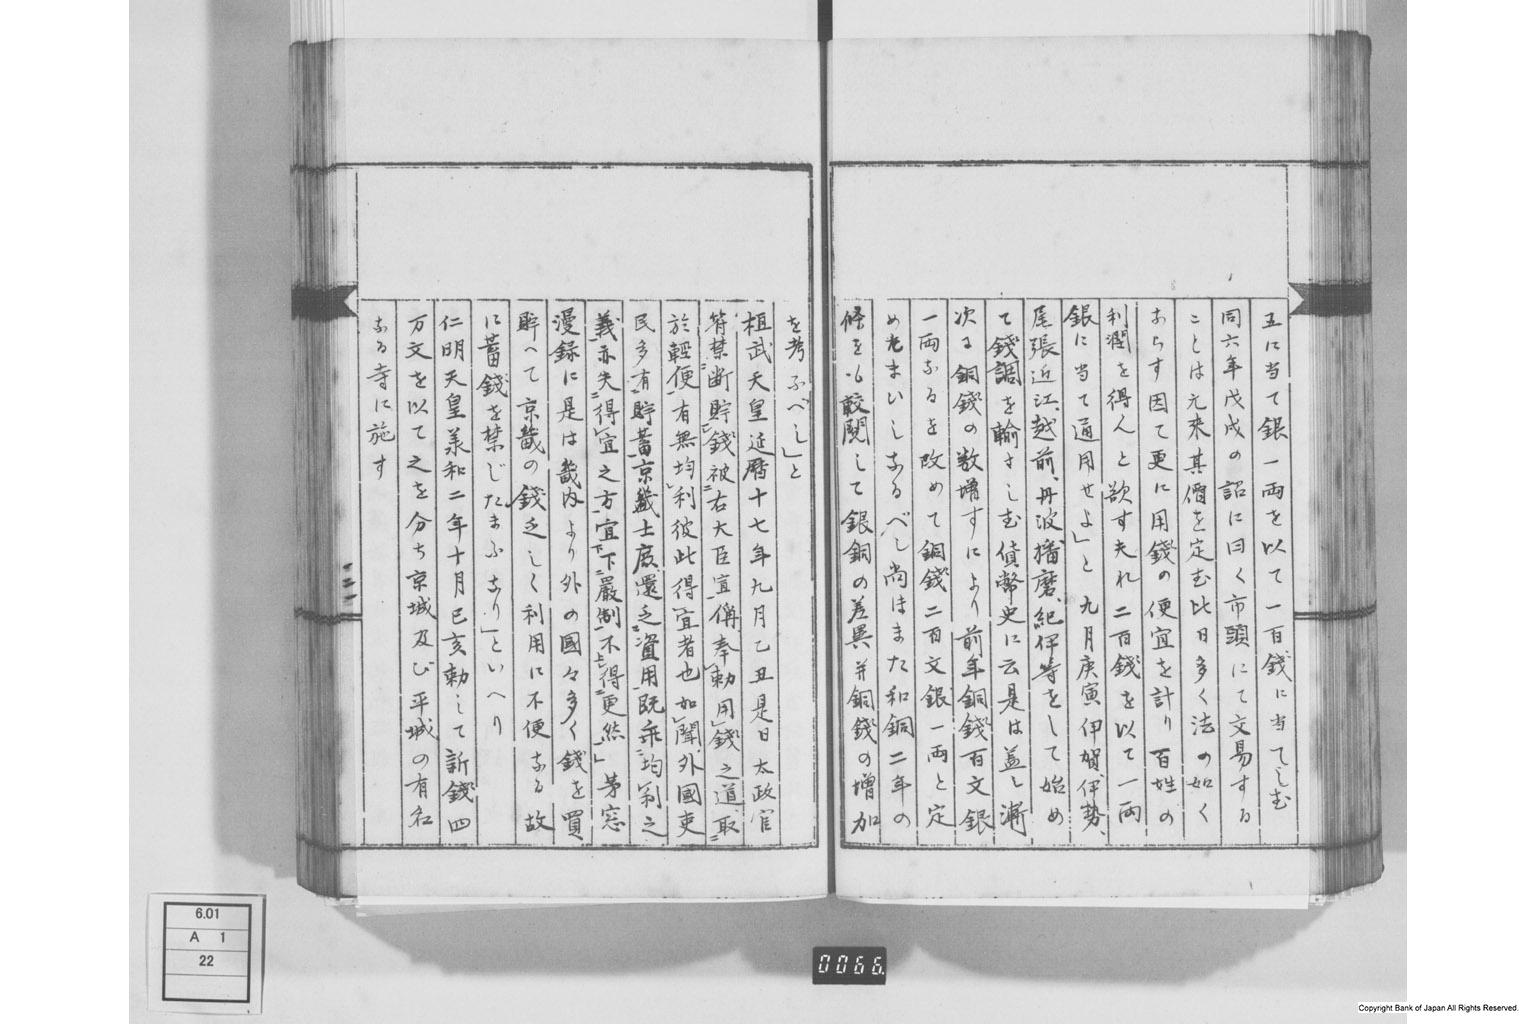 五に当て銀一両を以て一百錢に当てしむ
同六年戊戌の詔に曰く市頭にて交易する
ことは元来其價を定む比日多く法の如く
あらす因て更に用錢の便宜を計り百姓の
利潤を得んと欲す夫れ二百錢を以て一両
銀に当て通用せよ」と九月庚寅伊賀、伊勢、
尾張近江、越前、丹波播磨、紀伊等をして始め
て錢調を輸さしむ債幣史に云是は盖し漸
次る銅錢の数増すにより前年銅錢百文銀
一両なるを改めて銅錢二百文銀一両と定
めたまいしなるべし尚ほまた和銅二年の
條をも較閲して銀銅の差異并銅錢の増加
を考ふべし」と
桓武天皇延暦十七年九月乙丑是日太政官
符禁断貯錢被右大臣宣偁奉勅用錢之道取
於輕便有無均利彼此得宜者也如聞外國吏
民多有貯蓄京畿士庶還乏資用既乖均利之
義亦失得宜之方宜下嚴制不得更然」茅窓
漫録に是は畿内より外の國々多く錢を買
貯へて京畿の錢乏しく利用に不便なる故
に蓄錢を禁じたまふなり」といへり
仁明天皇羕和二年十月已亥勅して新錢四
万文を以て之を分ち京城及び平城の有名
なる寺に施す
6.01
A 1
22
0066.
Copyright Bank of Japan All Rights Reserved.